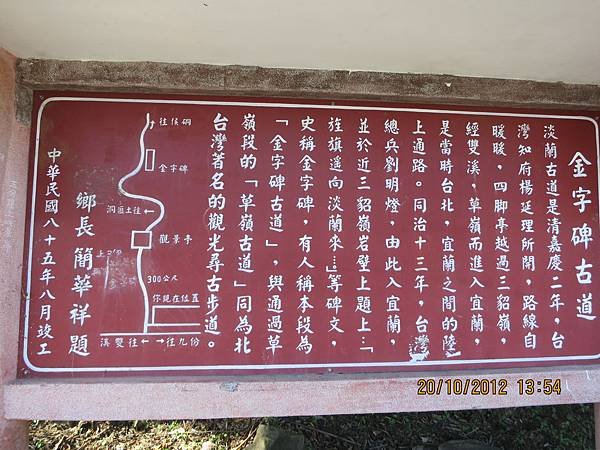 金字碑古道
淡蘭古道是清嘉慶12年，台
灣知府楊廷理所開，路線自
暖暖，四脚亭越過三貂嶺，
經雙溪，草嶺而進入宜蘭，
是當時台北，宜蘭之間的陸
上通路。同治十三年，台灣
總兵劉明燈，由此入宜蘭，
並於近三貂嶺岩壁上題上…「
旌旗遥向淡蘭來…」等碑文，
史稱金字碑，有人稱本段為
「金字碑古道」，與通過草
嶺段的「草嶺古道」同為北
台灣著名的觀光尋古步道。
往侯硐
金字碑
洞湎土往
觀景亭
300公尺
你現在位置
滇雙往← →往九份
鄉長簡華祥題
中華民國八十五年八月竣工
20/10/2012 13:54